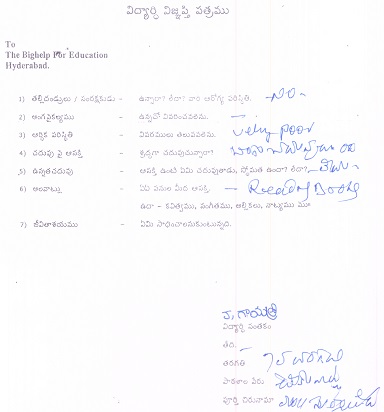 విద్యార్థి విజ్ఞప్తి పత్రము
To
The Bighelp For Education
Hyderabad.
1) తల్లిదండ్రులు / సంరక్షకుడు - ఉన్నారా? లేదా? వారి ఆరోగ్య పరిస్థితి. - NO -
2) అంగవైకల్యము - ఉన్నచో వివరించవలెను.
3) ఆర్థిక పరిస్థితి - వివరములు తెలుపవలెను. Very poor
4) చదువు పై ఆసక్తి - శ్రద్ధగా చదువుచున్నారా?
5) ఉన్నతచదువు - ఆసక్తి ఉంటే ఏమి చదువుతాడు, స్తోమత ఉందా? లేదా? -
6) అలవాట్లు - ఏఏ పనుల మీద ఆసక్తి. - Reading Books
ఉదా - కవిత్వము, సంగీతము, అల్లికలు, నాట్యము మా
7) జీవితాశయము - ఏమి సాధించాలనుకుంటున్నది.
గాయత్రి
విద్యార్థి సంతకం
తేది.
తరగతి
పాఠశాల పేరు
పూర్తి చిరునామా